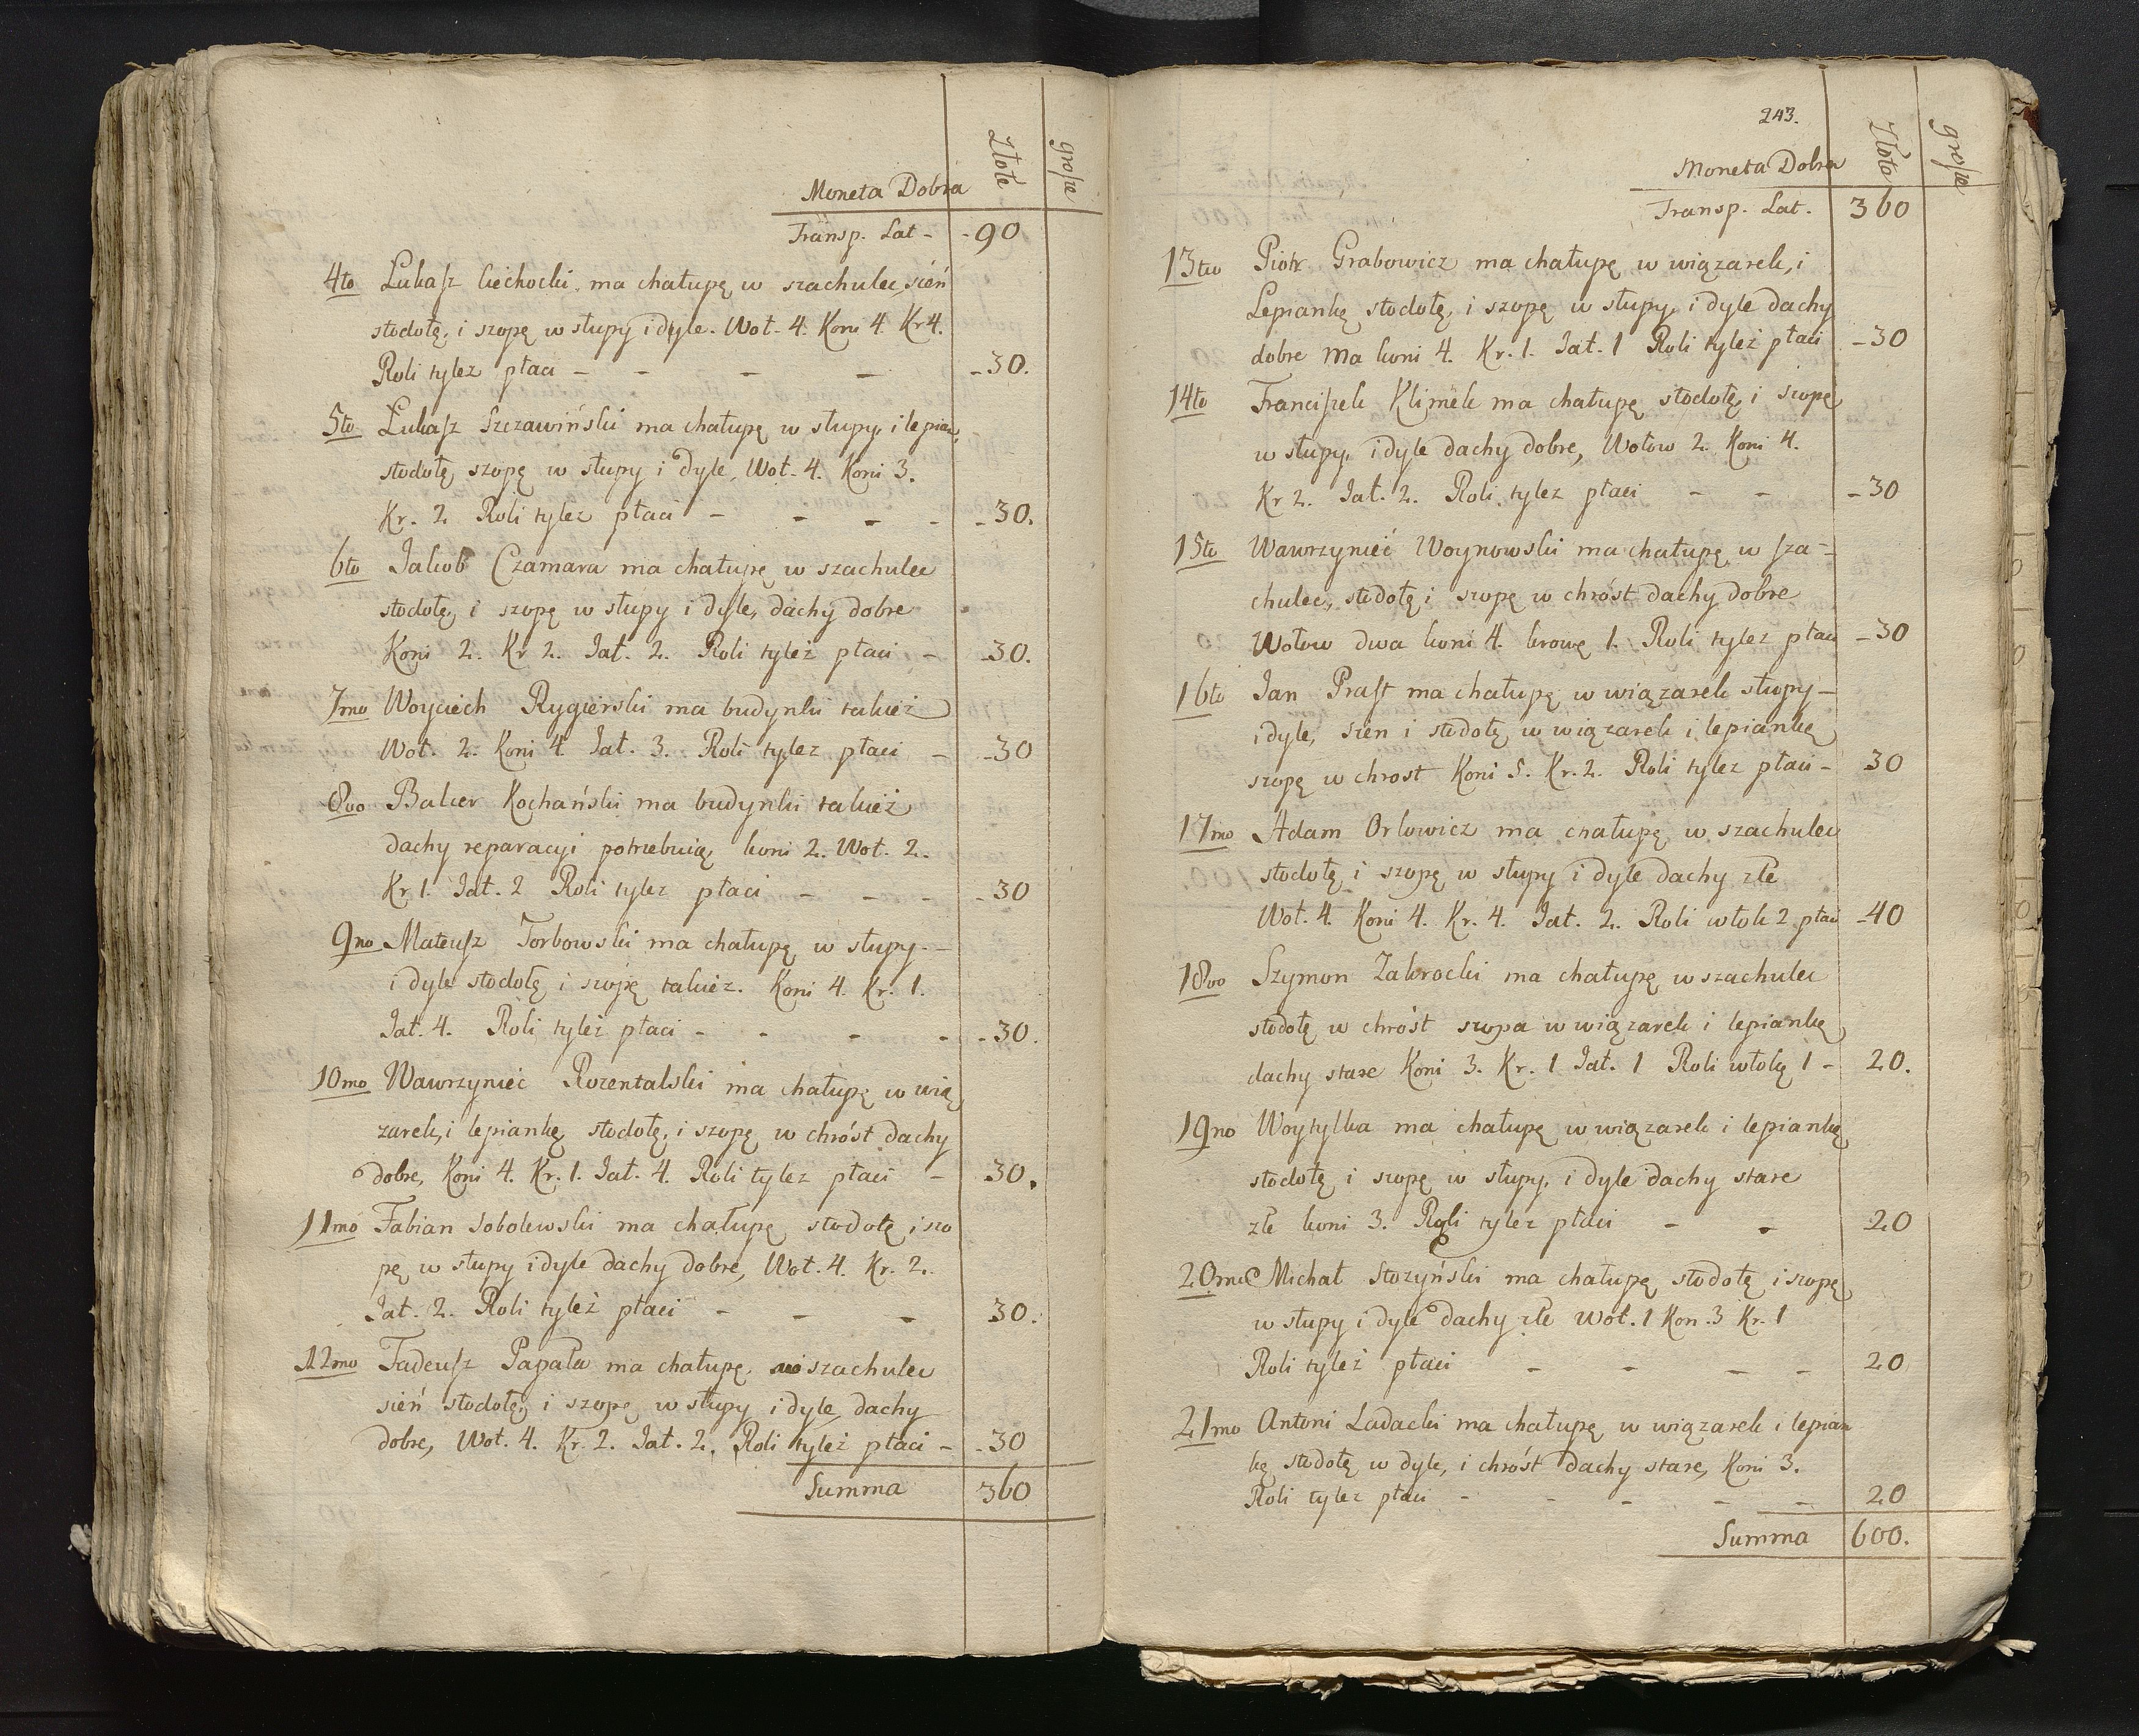 Moneta Dobra Złote grosze
Transp. Lat - - 90
4to Łukasz Ciechocki ma chałupę w szachulec, sień
stodołę, i szopę w słupy i dyle. Woł. 4. Koni 4. Kr 4.
Roli tylez płaci - - - - - 30.
5to Łukasz Szczawiński ma chałupę w słupy, i lepian,
stodołę szopę w słupy i dyle, Woł. 4. Koni 3.
Kr. 2 Roli tylez płaci - - - - - 30.
6to Jakob Czamara ma chałupę w szachulec
stodołę, i szopę w słupy i dyle, dachy dobre
Koni 2. Kr 2. Jał. 2. Roli tyleż płaci - - 30.
7mo Woyciech Rygierski ma budynki takież
Woł. 2. Koni 4. Jał. 3. Roli tylez płaci - - 30
8vo Balcer Kochański ma budynki takież
dachy reparacyi potrzebuią koni 2. Woł. 2.
Kr 1. Jał. 2 Roli tylez płaci - - - - 30
9no Mateusz Torbowski ma chałupę w słupy -
i dyle stodołę i szopę takiez. Koni 4. Kr. 1.
Jał. 4. Roli tyleż płaci - - - - - 30.
10mo Wawrzyniec Rozentalski ma chałupę w wią
zarek, i lepiankę stodołę, i szopę w chróst dachy
dobre, Koni 4. Kr. 1. Jał. 4. Roli tylez płaci - 30.
11mo Fabian Sobolewski ma chałupę stodołę i szo
pę w słupy i dyle dachy dobre, Woł. 4. Kr. 2.
Jał. 2. Roli tyleż płaci - - - 30.
12mo Tadeusz Papała ma chałupę w szachulec
sień stodołę, i szopę w słupy i dyle dachy
dobre, Woł. 4. Kr. 2. Jał. 2. Roli tyleż płaci - - 30
Summa 360
243.
Moneta Dobra Złote grosze
Transp. Lat. 360
13tio Piotr Grabowicz ma chałupę w wiązarek, i
Lepiankę stodołę, i szopę w słupy, i dyle dachy
dobre ma koni 4. Kr. 1. Jał. 1 Roli tyleż płaci - 30
14to Franciszek Klimek ma chałupę stodołę i szopę
w słupy, i dyle dachy dobre, Wołow 2. Koni 4.
Kr 2. Jał. 2. Roli tylez płaci - - - 30
15to Wawrzynieć Woynowski ma chałupę w sza-
chulec, stodołę i szopę w chróst dachy dobre
Wołow dwa koni 4. krowę 1. Roli tylez płaci - 30
16to Jan Prast ma chałupę w wiązarek słupy -
i dyle, sien i stodołę w wiązarek i lepiankę
szopę w chrost Koni 5. Kr. 2. Roli tylez płaci - 30
17mo Adam Orlowicz ma chałupę w szachulec
stodołę i szopę w słupy i dyle dachy złe
Woł. 4. Koni 4. Kr. 4. Jał. 2. Roli włok 2 płaci - 40
18vo Szymon Zakrocki ma chałupę w szachulec
stodołę w chróst szopa w wiązarek i lepiankę
dachy stare Koni 3. Kr. 1 Jał. 1 Roli włokę 1 - 20.
19no Woytylka ma chałupę w wiązarek i lepiankę
stodołę i szopę w słupy, i dyle dachy stare
złe koni 3. Roli tylez płaci - - 20
20mo Michał Stozyński ma chałupę stodołę i szopę
w słupy i dyle dachy złe Woł. 1 Kon. 3 Kr. 1
Roli tyleż płaci - - - - 20
21mo Antoni Ladacki ma chałupę w wiązarek i lepian
kę stodołę w dyle, i chróst dachy stare, Koni 3.
Roli tylez płaci - - - - - 20
Summa 600.